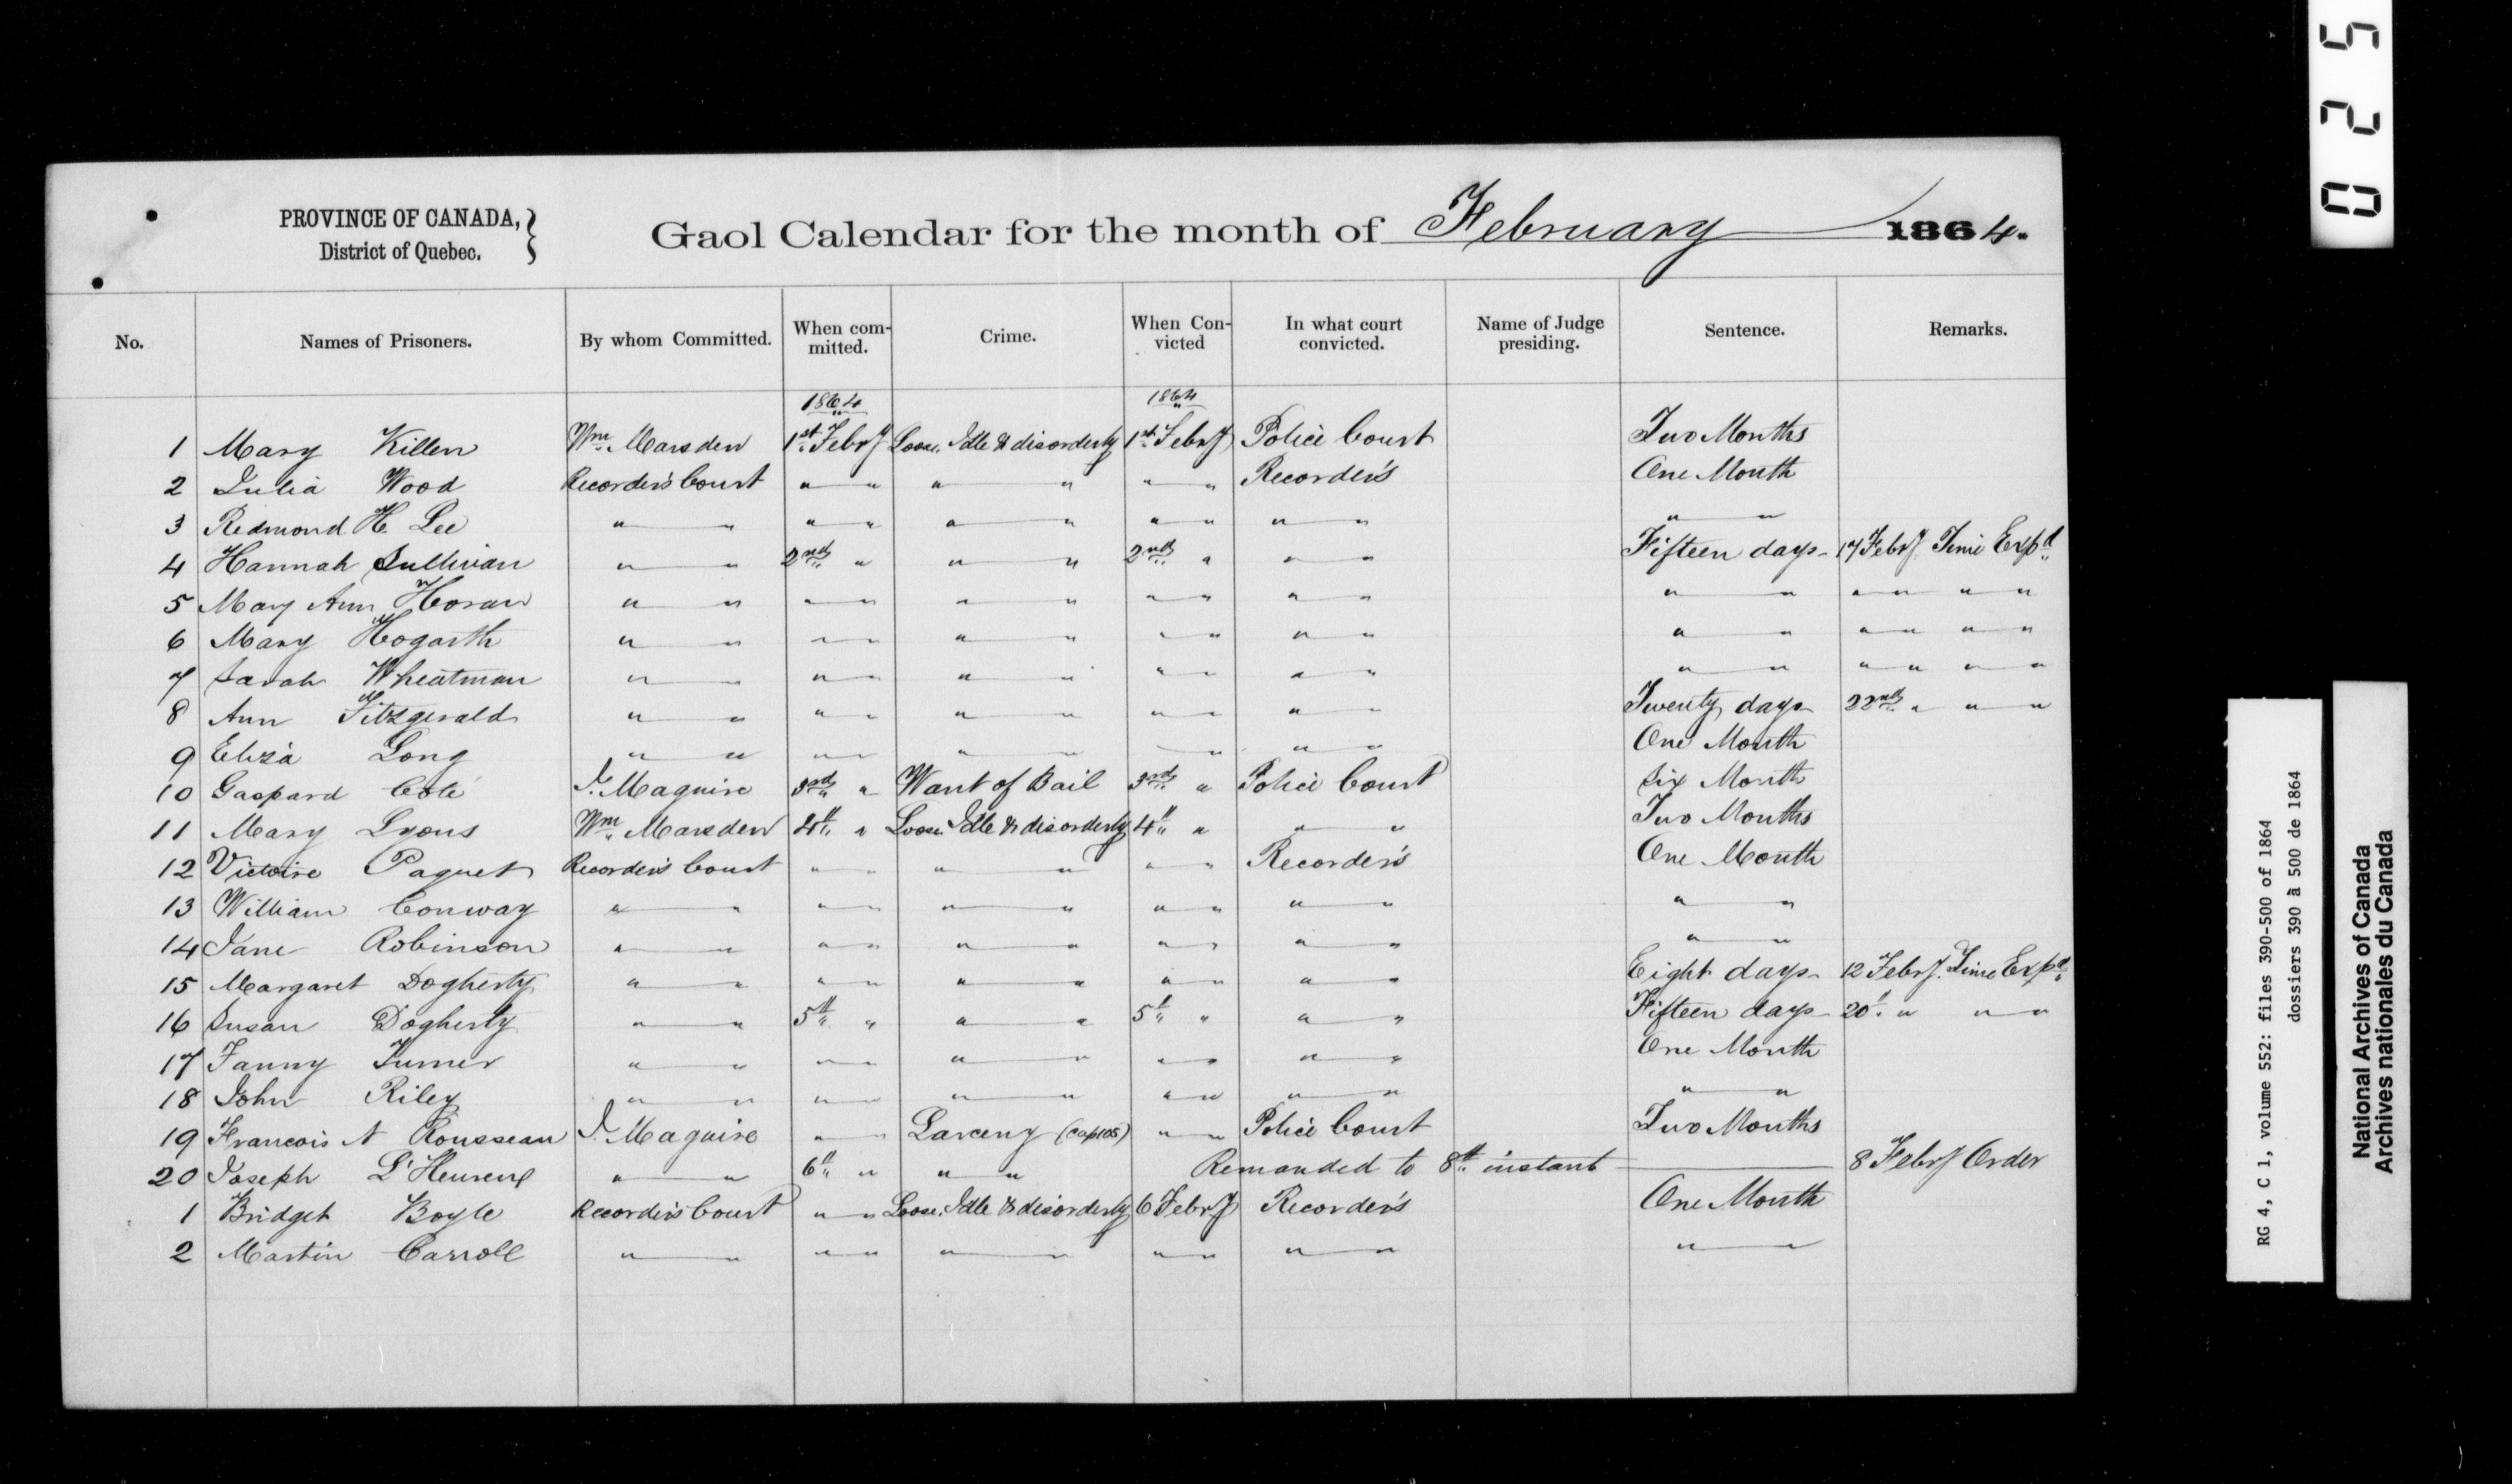 PROVINCE OF CANADA,
District of Quebec.
Gaol Calendar for the month of February 1864.
No. Names of Prisoners. By whom Committed. When com-mitted. Crime. When Con-victed In what court convicted. Name of Judge presiding. Sentence. Remarks.
1864 1864
1 Mary Killen Wm Marsden 1st Febry Loose, Idle & disorderly 1st Febry Police Court Two Months
2 Julia Wood Recorder's Court " " " " " " Recorder's One Month
3 Redmond H. Lee " " " " " " " " " " " "
4 Hannah Sullivan " " 2nd " " " 2nd " " " Fifteen days - 17 Febry. Time Expd
5 Mary Ann Horan " " " " " " " " " " " " " " " "
6 Mary Hogarth " " " " " " " " " " " " " " " "
7 Sarah Wheatman " " " " " " " " " " " " " " " "
8 Ann Fitzgerald " " " " " " " " " " Twenty days 22nd " " "
9 Eliza Long " " " " " " " " " " One Month
10 Gaspard Coté J. Maguire 3rd " Want of Bail 3rd " Police Court Six Month
11 Mary Lyons Wm Marsden 4th " Loose, Idle & disorderly 4th " " " Two Months
12 Victoire Paquet Recorder's Court " " " " " " Recorder's One Month
13 William Conway " " " " " " " " " " " "
14 Jane Robinson " " " " " " " " " " " "
15 Margaret Dogherty " " " " " " " " " " Eight days - 12 Febry. Time Expd
16 Susan Dogherty " " 5th " " " 5th " " " Fifteen days 20th " " "
17 Fanny Turner " " " " " " " " " " One Month
18 John Riley " " " " " " " " " " " "
19 Francois N Rousseau J. Maguire " " Larceny (Cap 105) " " Police Court Two Months
20 Joseph L'Heureux " " 6th " " " Remanded to 8th instant 8 Febry Order
1 Bridget Boyle Recorder's Court " " Loose, Idle & disorderly 6 Febry Recorder's One Month
2 Martin Carroll " " " " " " " " " " " "
025
RG 4, C 1, volume 552: files 390-500 of 1864
dossiers 390 à 500 de 1864
National Archives of Canada
Archives nationales du Canada